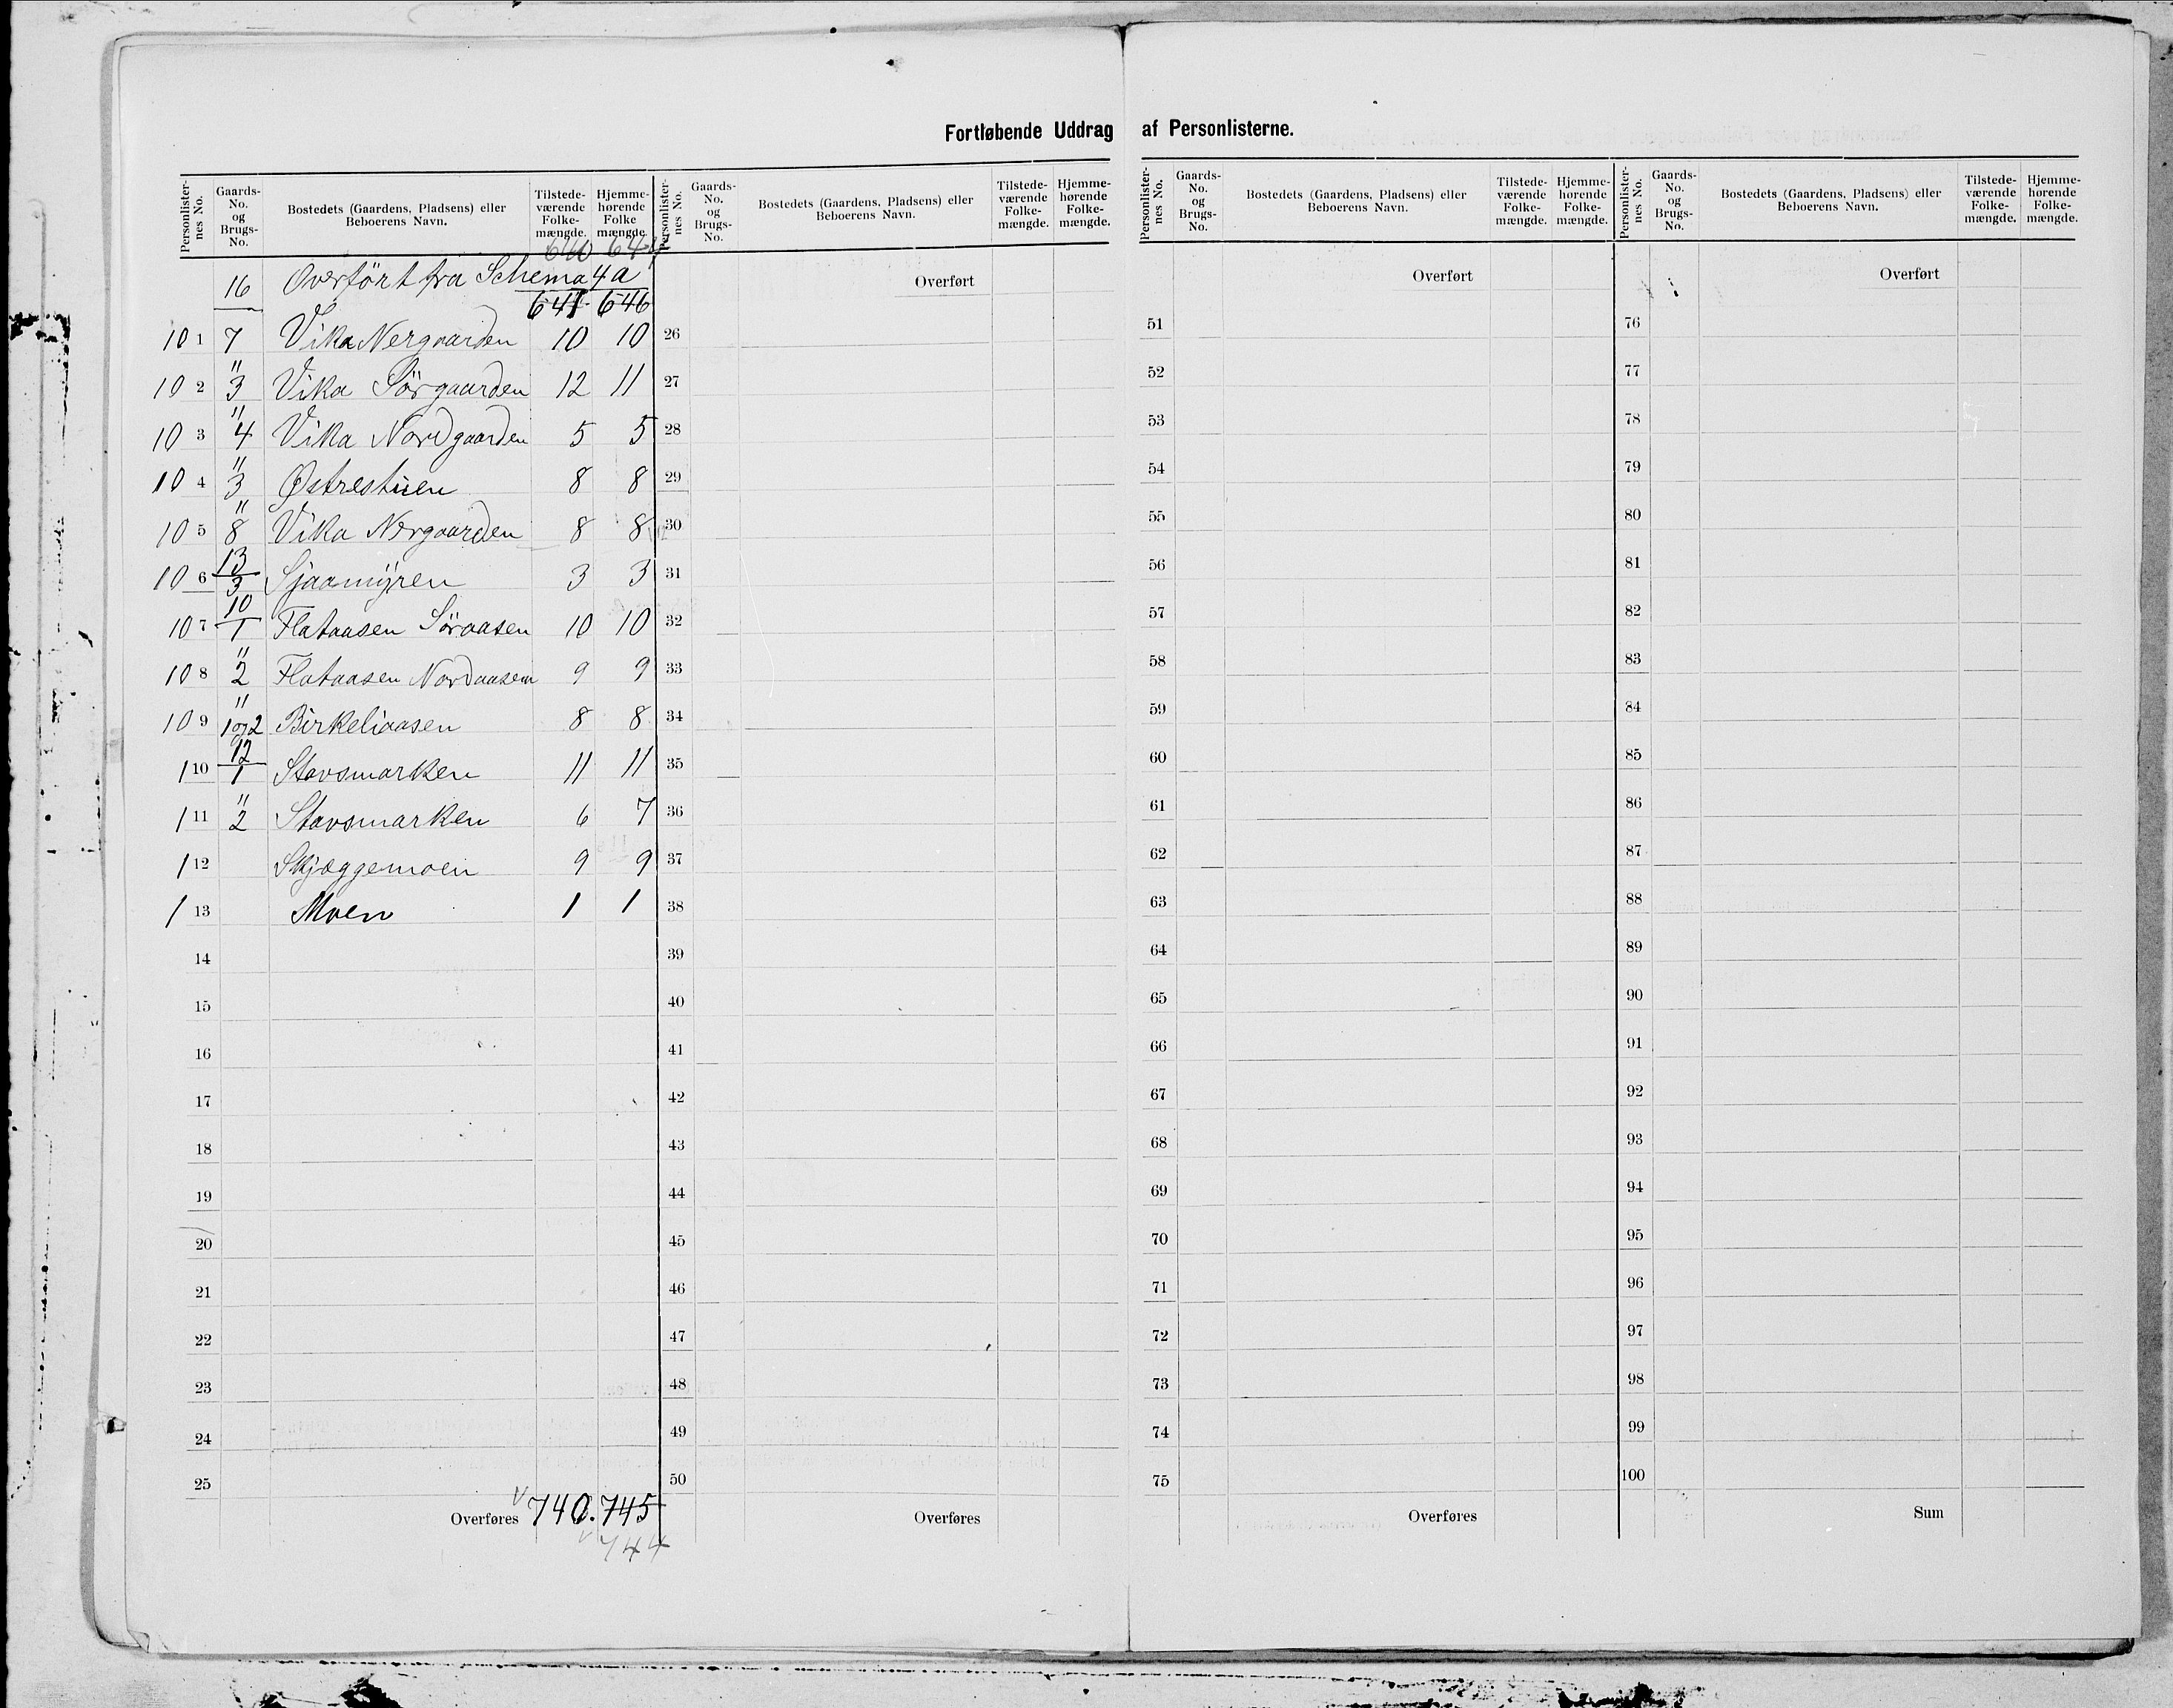 Fortløbende Uddrag af Personlisterne.
Personlister-nes No. | Gaards-No. og Brugs-No. | Bostedets (Gaardens, Pladsens) eller Beboerens Navn. | Tilstede-værende Folke-mængde. | Hjemme-hørende Folke mængde.
640 644
16 Overført fra Schema 4a
641 646
10 1 7 Vika Nergaarden 10 10
10 2 " 3 Vika Sörgaarden 12 11
10 3 " 4 Vika Nordgaarden 5 5
10 4 " 3 Østrestuen 8 8
10 5 " 8 Vika Nergaarden 8 8
10 6 13/3 Sjaamyren 3 3
10 7 10/1 Flataasen Söraasen 10 10
10 8 " 2 Flataasen Nordaasen 9 9
10 9 " 1 og 2 Birkeliaasen 8 8
1 10 12/1 Stavsmarken 11 11
1 11 " 2 Stavsmarken 6 7
1 12 Skjæggemoen 9 9
1 13 Moen 1 1
14
15
16
17
18
19
20
21
22
23
24
25
Overføres 740. 745
744
Personlister-nes No. | Gaards-No. og Brugs-No. | Bostedets (Gaardens, Pladsens) eller Beboerens Navn. | Tilstede-værende Folke-mængde. | Hjemme-hørende Folke-mængde.
Overført
26
27
28
29
30
31
32
33
34
35
36
37
38
39
40
41
42
43
44
45
46
47
48
49
50
Overføres
Personlister-nes No. | Gaards-No. og Brugs-No. | Bostedets (Gaardens, Pladsens) eller Beboerens Navn. | Tilstede-værende Folke-mængde. | Hjemme-hørende Folke-mængde.
Overført
51
52
53
54
55
56
57
58
59
60
61
62
63
64
65
66
67
68
69
70
71
72
73
74
75
Overføres
Personlister-nes No. | Gaards-No. og Brugs-No. | Bostedets (Gaardens, Pladsens) eller Beboerens Navn. | Tilstede-værende Folke-mængde. | Hjemme-hørende Folke-mængde.
Overført
76
77
78
79
80
81
82
83
84
85
86
87
88
89
90
91
92
93
94
95
96
97
98
99
100
Sum